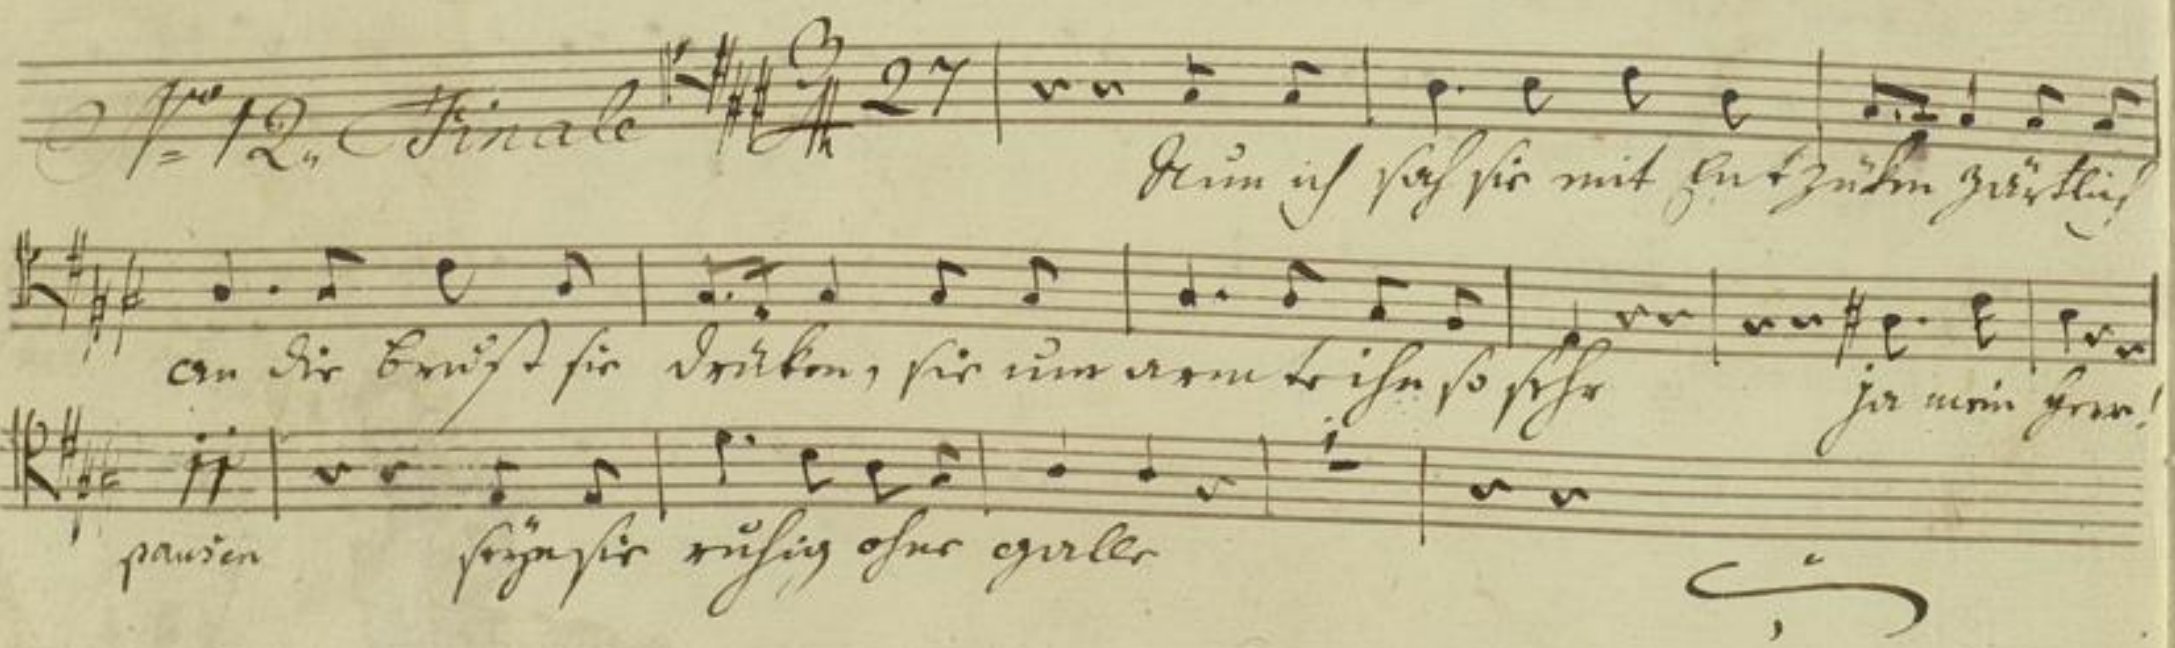 Nro 12. Finale 3/4 27
Nun ich sah sie mit Entzüken zärtlich
an die brust sie drüken, sie umarmte ihn so sehr ja mein Herr!
pausen seÿn sie ruhig ohne galle